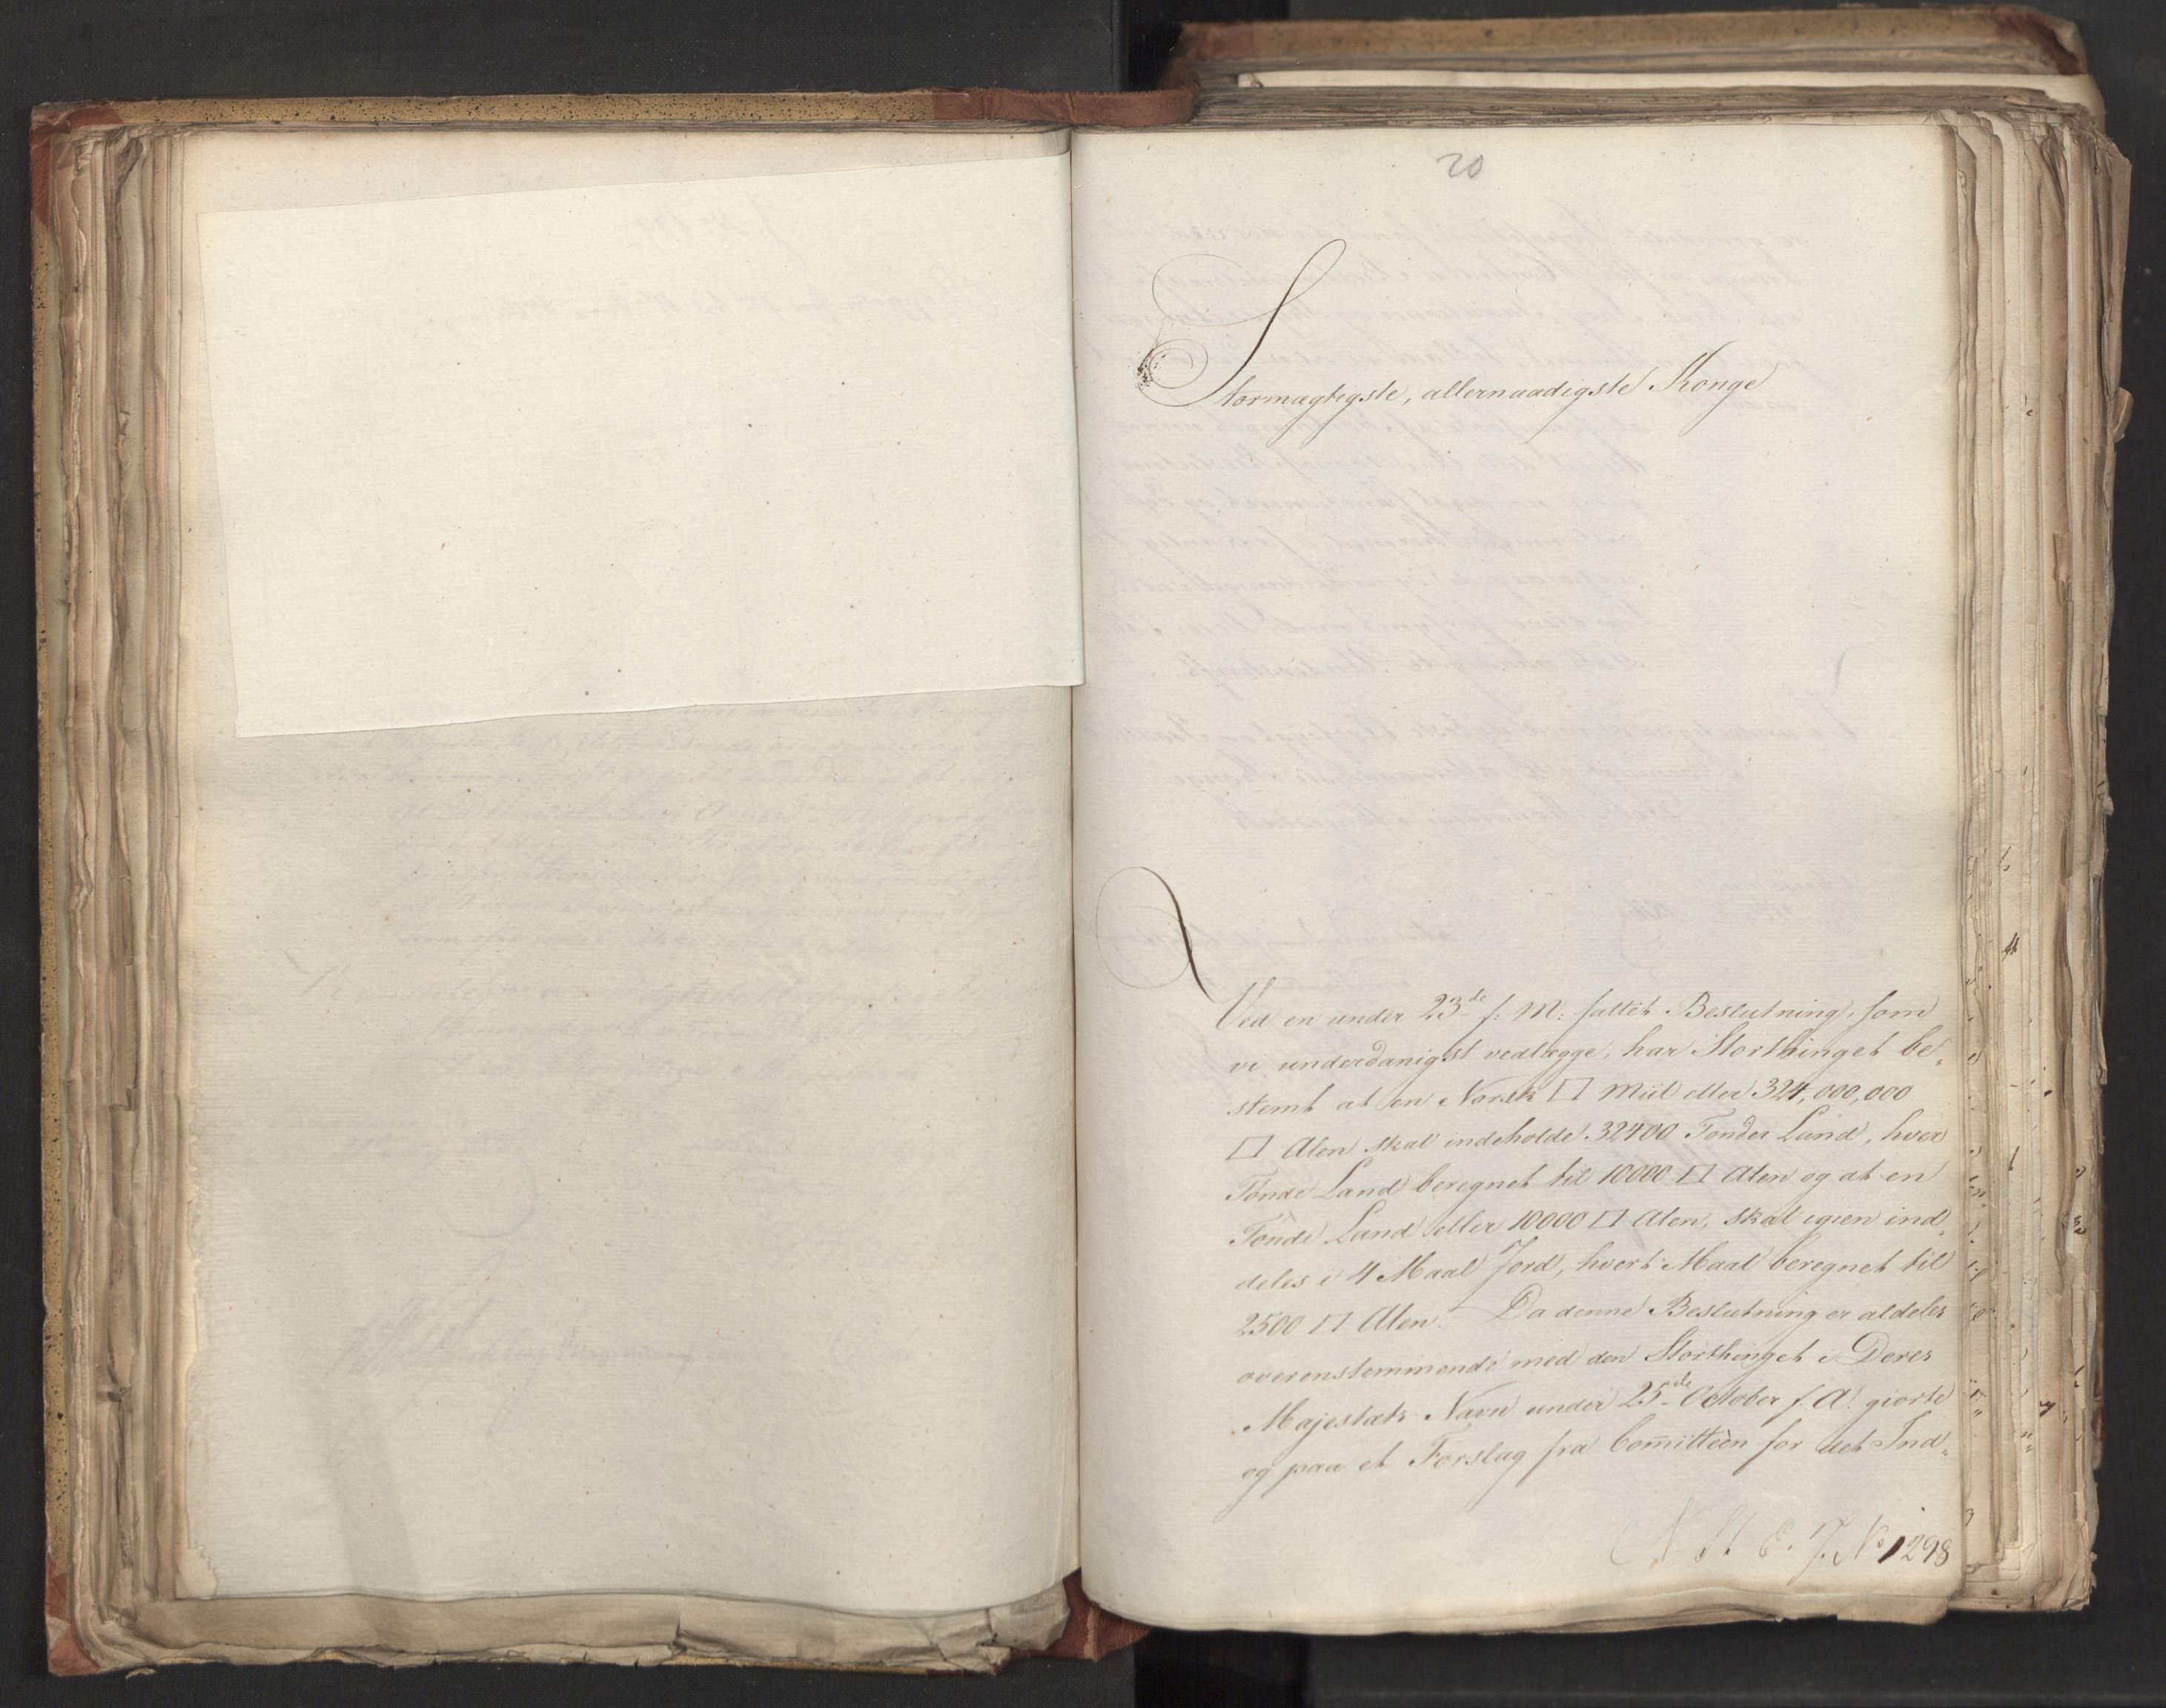 20
Stormægtigste, allernaadigste Konge
Ved en under 23de f: M: fattet Beslutning, som
vi underdanigst vedlægge, har Storthinget be„
stemt at en Norsk □ Miil eller 324,000,000
□ Alen skal indeholde 32400 Tønder Land, hver
Tønde Land beregnet til 10000 □ Alen og at en
Tønde Land eller 10000 □ Alen, skal igien ind„
deles i 4 Maal Jord, hvert Maal beregnet til
2500 □ Alen. Da denne Beslutning er aldeles
overensstemmende med den Storthinget i Deres
Majestæts Navn under 25de October f. A. giorte
og paa et Forslag fra Com̅itteen for det Ind„
N. St. E. J. No 1298